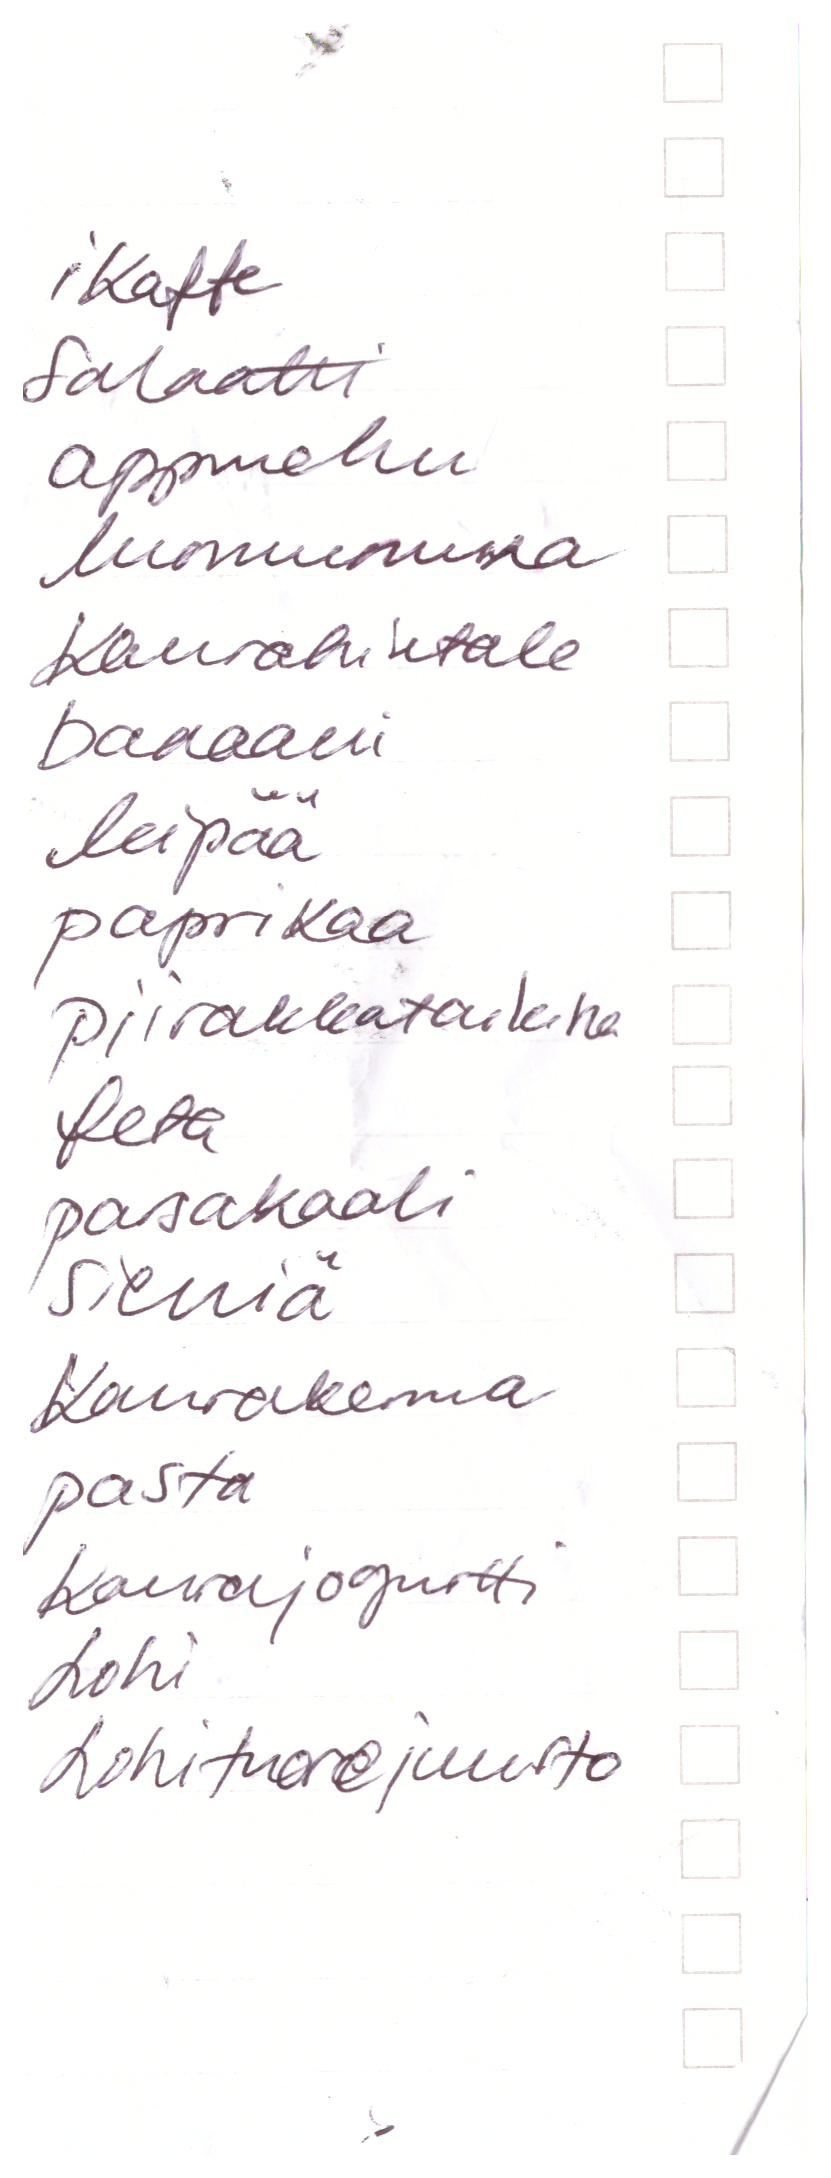 iKaffe
Salaatti
appmehu
luomumuna
Kaurahiutale
banaani
leipää
paprikaa
piirakkataikina
feta
parsakaali
Sieniä
Kaurakerma
pasta
Kaurajogurtti
Lohi
Lohituorejuusto